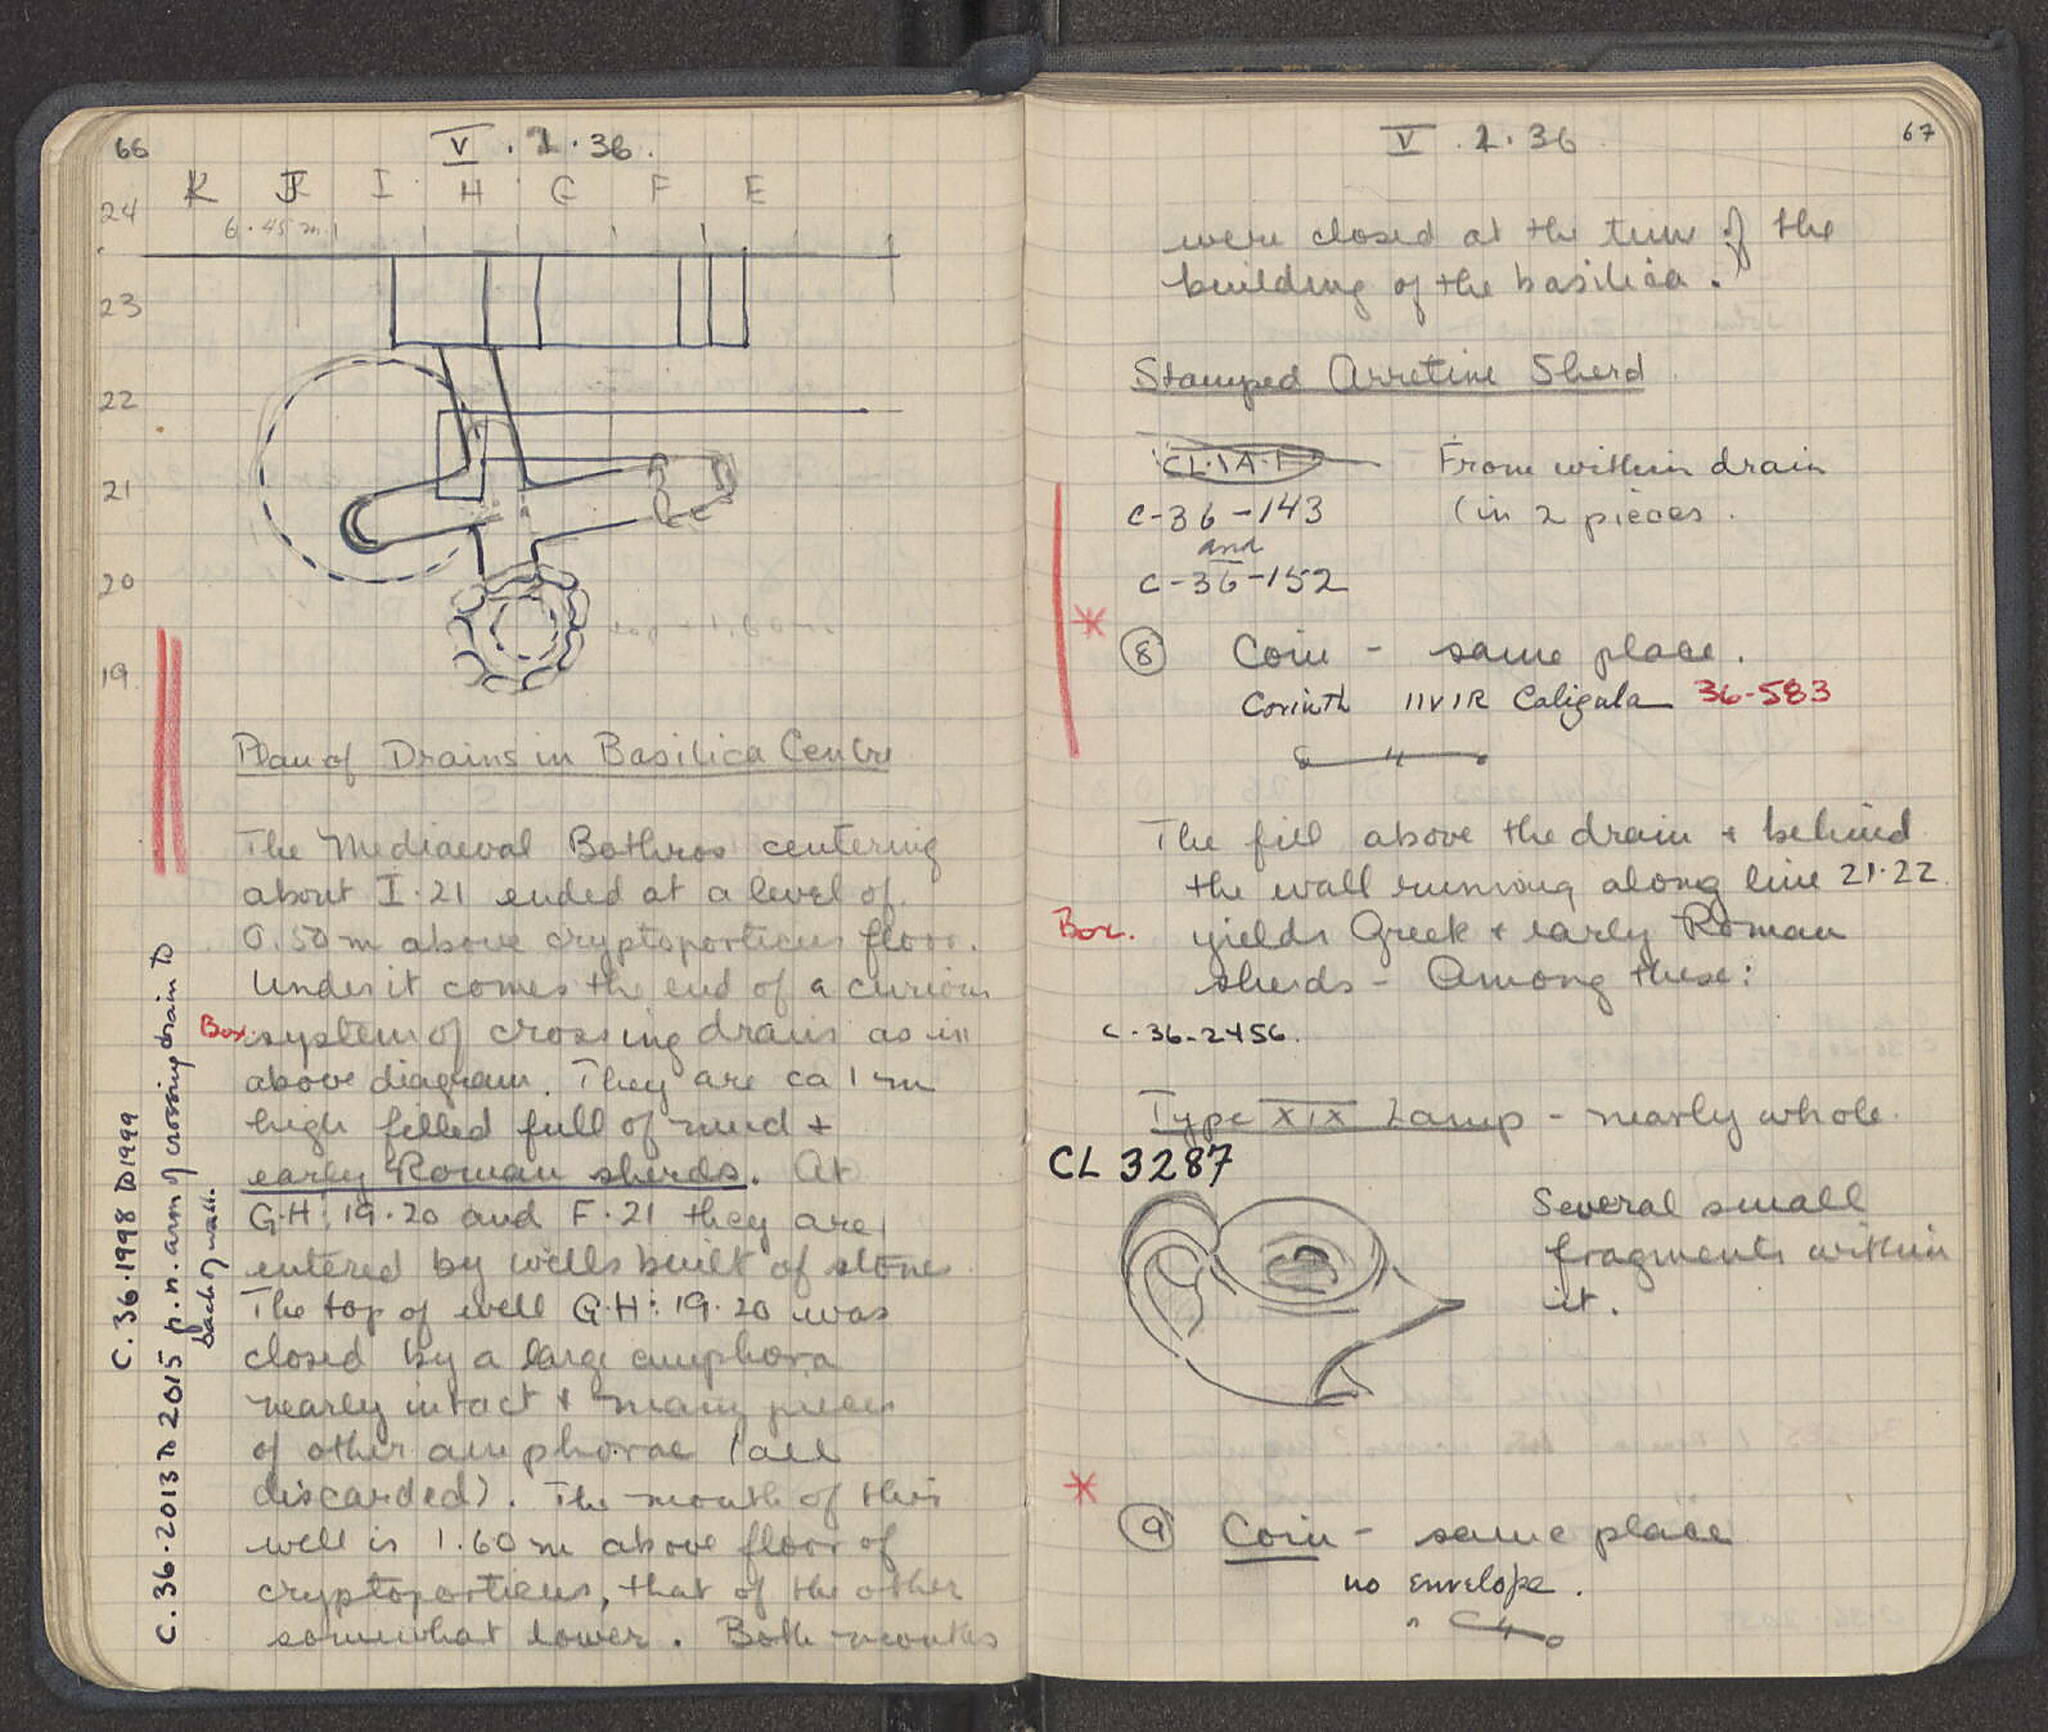 66
V . 2 . 36.
K J I H G F E
24
6.45 m.
23
22
21
20
19
top + 1.60 m.
Plan of Drains in Basilica Centre
The Mediaeval Bothros centering
about I.21 ended at a level of
0.50 m above cryptoporticus floor.
Under it comes the end of a curious
Box. system of crossing drains as in
above diagram. They are ca 1 m
high filled full of mud +
early Roman sherds. At
G.H: 19.20 and F.21 they are
entered by wells built of stone
The top of well G.H: 19.20 was
closed by a large amphora
nearly intact + many pieces
of other amphorae (all
discarded). The mouth of this
well is 1.60 m above floor of
cryptoporticus, that of the other
somewhat lower. Both mouths
C.36.1998 to 1999
C.36.2013 to 2015 p.n. arm of crossing drain to
back of wall.
67
V . 2 . 36
were closed at the time of the
building of the basilica.
Stamped Arretine Sherd
From within drain
C-36-143 (in 2 pieces.
and
C-36-152
8 Coin - same place.
Corinth IIVIR Caligula 36-583
The fill above the drain + behind
the wall running along line 21.22
Box. yields Greek + early Roman
sherds - Among these:
C.36-2456.
Type XIX Lamp - nearly whole.
CL 3287
Several small
fragments within
it.
9 Coin - same place
no envelope.